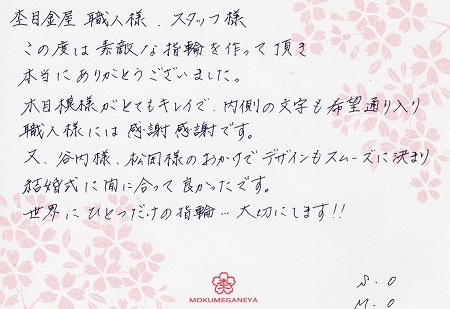 杢目金屋 職人様、スタッフ様
この度は素敵な指輪を作って頂き
本当にありがとうございました。
木目模様がとてもキレイで、内側の文字も希望通り入り
職人様には感謝感謝です。
又、谷内様、松岡様のおかげでデザインもスムーズに決まり
結婚式に間に合って良かったです。
世界にひとつだけの指輪…大切にします!!
MOKUMEGANEYA
S.O
M.O